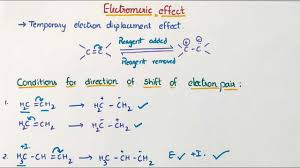 Electromeric effect
→ Temporary electron displacement effect.
>C=C< Reagent added ⊕ ⊖ >C–C<
Reagent removed
Conditions for direction of shift of electron pair:
1. H₂C=CH₂ → H₂C⁺–C̄H₂ ✓
H₂C=CH₂ → H₂C̄–C⁺H₂ ✓
+I.
2. CH₃–CH=CH₂ → CH₃–C⁺H–C̄H₂ E ✓ +I. ✓